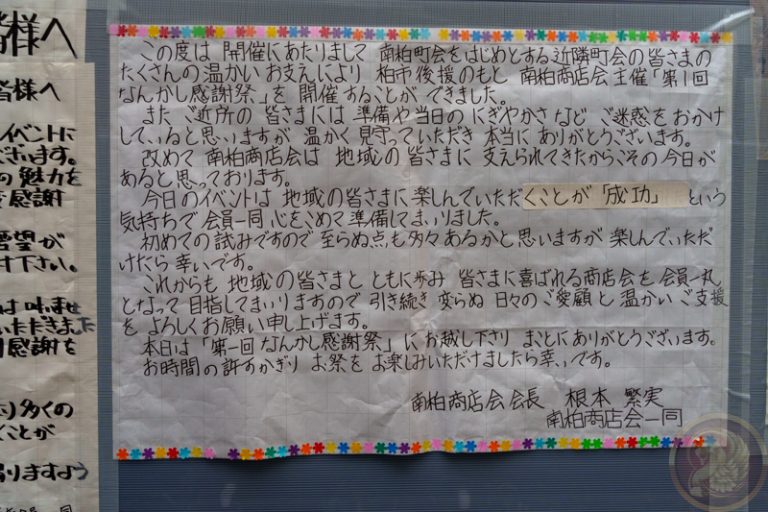 皆様へ
皆様へ
イベントに
ざいます。
の魅力を
感謝
要望が
け下さい。
いただきました
感謝を
多くの
ことが
りますよう
この度は 開催にあたりまして 南柏町会をはじめとする近隣町会の皆さまの
たくさんの温かいお支えにより 柏市後援のもと 南柏商店会主催「第1回
なんかし感謝祭」を 開催することが できました。
また ご近所の 皆さまには 準備や当日の にぎやかさなど ご迷惑をおかけ
していると思いますが 温かく見守っていただき 本当に ありがとうございます。
改めて 南柏商店会は 地域の皆さまに 支えられてきたからこその 今日が
あると思っております。
今日のイベントは 地域の皆さまに楽しんでいただくことが「成功」 という
気持ちで会員一同 心をこめて準備してまいりました。
初めての試みですので至らぬ点も多々あるかと思いますが 楽しんでいただ
けたら幸いです。
これからも 地域の皆さまと ともに歩み 皆さまに喜ばれる商店会を 会員一丸
となって目指してまいりますので 引き続き 変らぬ 日々のご愛顧と温かいご支援
を よろしくお願い申し上げます。
本日は「第一回 なんかし感謝祭」にお越し下り まことにありがとうございます。
お時間の許すかぎり お祭をお楽しみいただけましたら幸いです。
南柏商店会会長 根本 繁実
南柏商店会一同